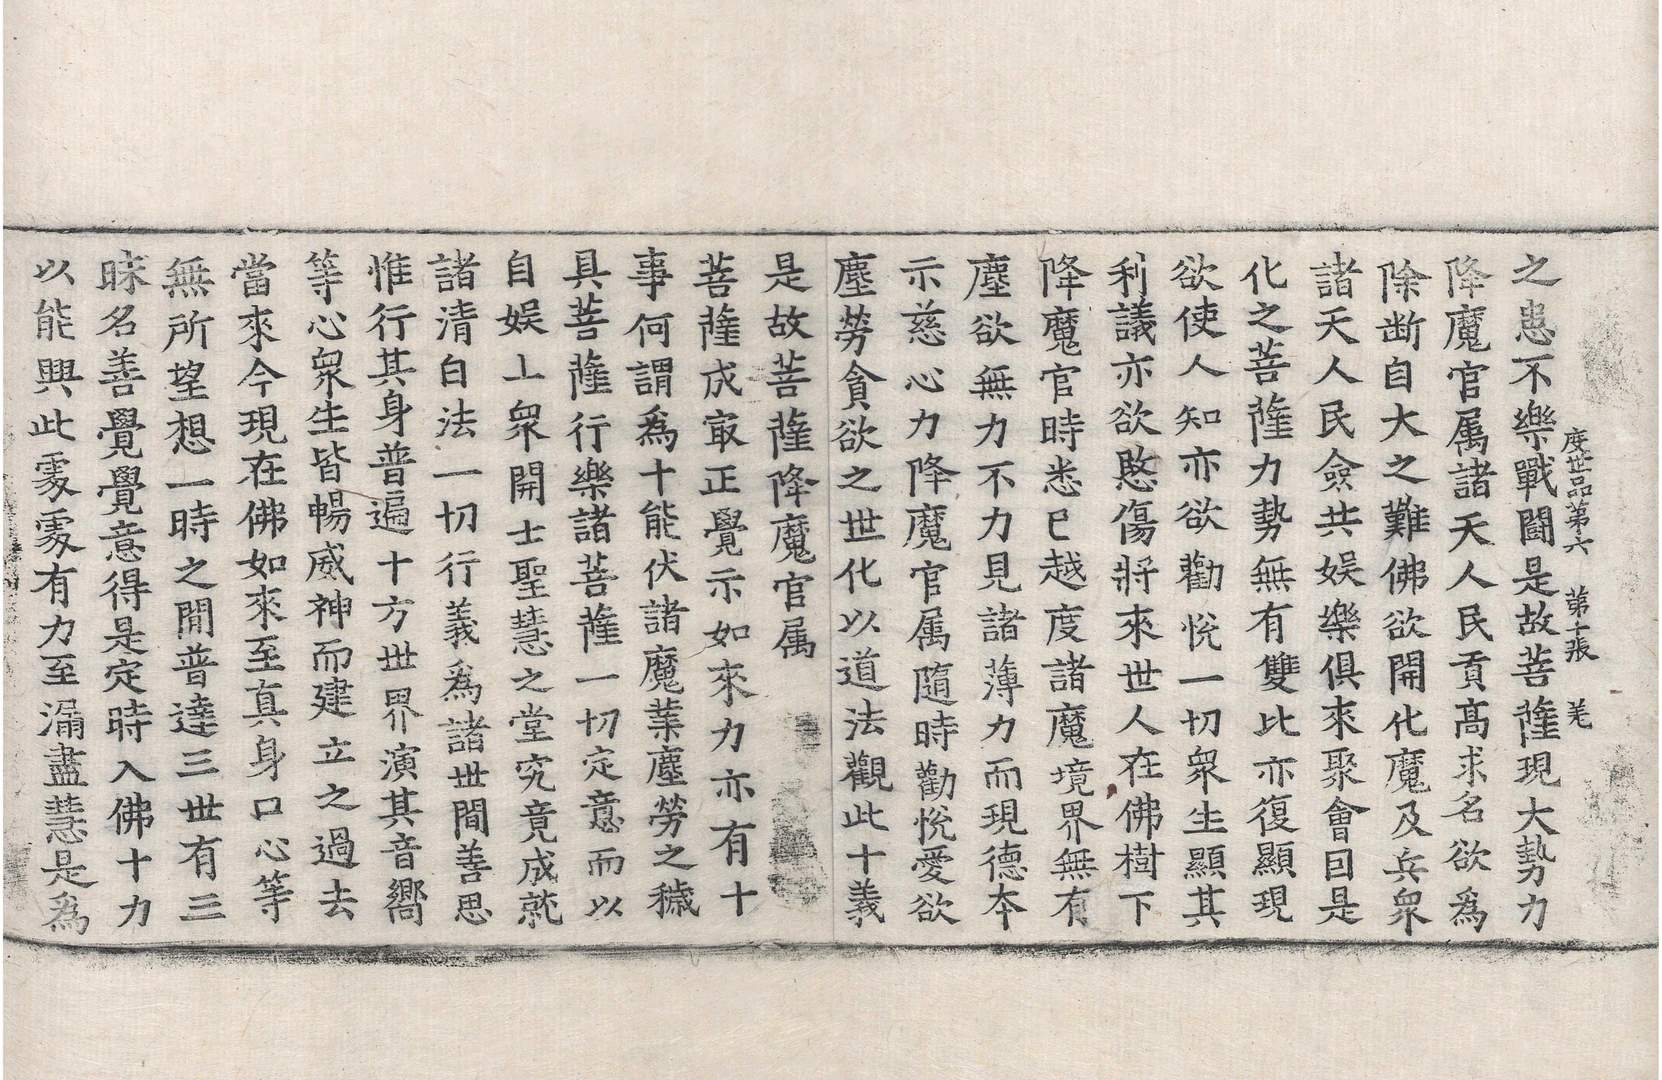 度世品第六 第十張 羌
之患不樂戰鬪是故菩薩現大勢力
降魔官属諸天人民貢高求名欲為
除断自大之難佛欲開化魔及兵衆
諸天人民僉共娱樂俱來聚會因是
化之菩薩力勢無有雙比亦復顯現
欲使人知亦欲勸恱一切衆生顯其
利議亦欲愍傷將來世人在佛樹下
降魔官時悉已越度諸魔境界無有
塵欲無力不力見諸薄力而現德本
示慈心力降魔官属隨時勸恱愛欲
塵勞貪欲之世化以道法觀此十義
是故菩薩降魔官属
菩薩成㝡正覺示如來力亦有十
事何謂為十能伏諸魔業塵勞之穢
具菩薩行樂諸菩薩一切定意而以
自娱上衆開士聖慧之堂究竟成就
諸清白法一切行義為諸世間善思
惟行其身普遍十方世界演其音嚮
等心衆生皆暢威神而建立之過去
當來今現在佛如來至真身口心等
無所望想一時之閒普達三世有三
昧名善覺覺意得是定時入佛十力
以能興此䖏䖏有力至漏盡慧是為